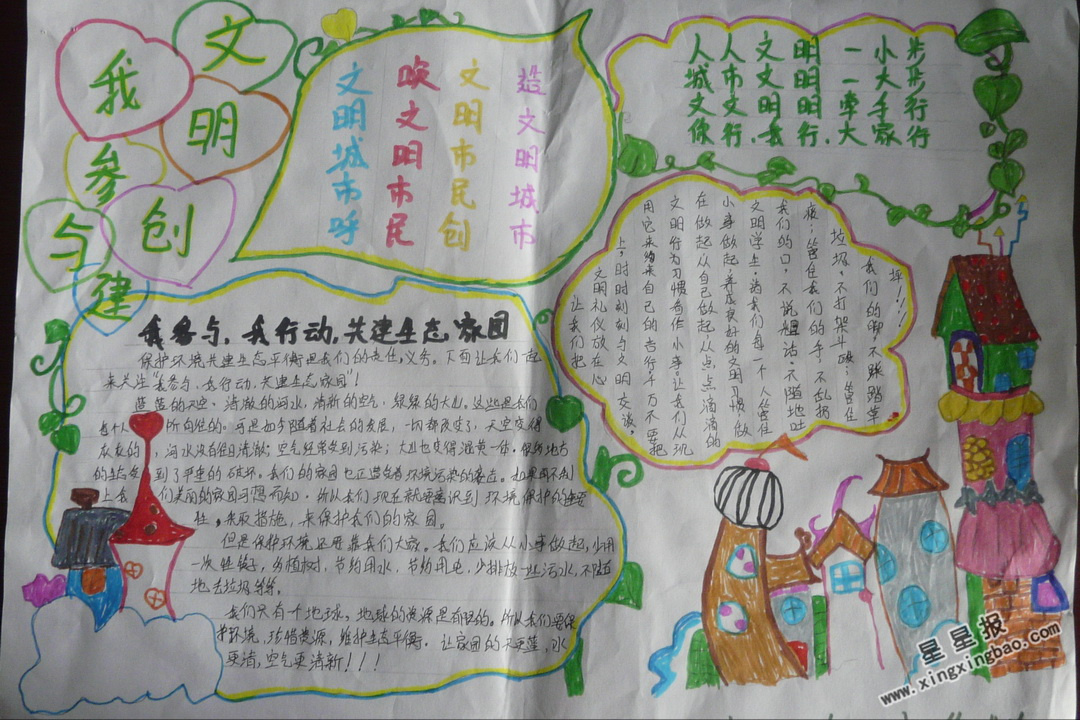 文明创建
我参与
文明城市呼
唤文明市民
文明市民创
造文明城市
人人文明一小步
城市文明一大步
文文明明牵手行
你行.我行.大家行
让我们把
文明礼仪放在心
上,时时刻刻与文明交谈,
用它来约束自己的言行,千万不要把
文明行为习惯看作小事,让我们从现
在做起从自己做起从点点滴滴的
小事做起,养成良好的文明习惯,做
文明学生,为我们每一个人管住
我们的口,不说粗话,不随地吐
痰;管住我们的手,不乱扔
垃圾,不打架斗殴;管住
我们的脚,不踩踏草
坪!!!
我参与,我行动,共建生态家园
保护环境共建生态平衡是我们的责任,义务。下面让我们一起
来关注“我参与,我行动,共建生态家园”!
蓝蓝的天空、清澈的河水,清新的空气,绿绿的大山。这些是我们
每个人所向往的。可是如今随着社会的发展,一切都改变了,天空变得
灰灰的,河水没有往日清澈;空气经常受到污染;大山也变得混黄一体。很多地方
的生态受到了严重的破坏。我们的家园也正遭受着环境污染的袭击。如果再不制
上去,们美丽的家园可想而知,所以我们现在就要意识到环境保护的重要
性,采取措施,来保护我们的家园。
但是保护环境还要靠我们大家。我们应该从小事做起,少用
一次性筷子,多植树,节约用水,节约用电,少排放一些污水,不随
地去垃圾等等。
我们只有一个地球,地球的资源是有限的。所以我们要保
护环境,珍惜资源,维护生态平衡。让家园的天更蓝,水
更清,空气更清新!!!
星星报
www.xingxingbao.com